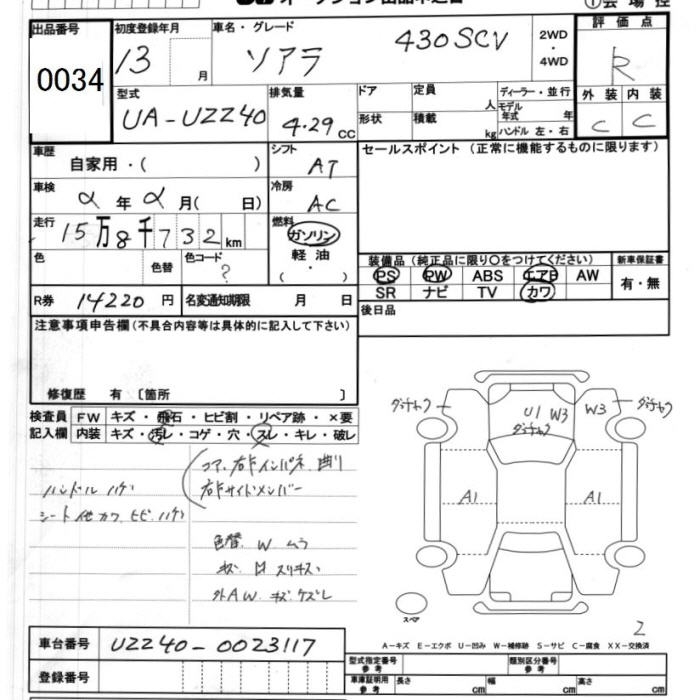 出品番号
0034
初度登録年月
13 月
車名・グレード
ソアラ 430SCV
2WD
・
4WD
評価点
R
型式
UA-UZZ40
排気量
4.29 CC
ドア
定員
人
ディーラー・並行
外装 内装
C C
形状
積載
kg
モデル
年式 年
ハンドル 左・右
車歴
自家用・( )
シフト
AT
セールスポイント(正常に機能するものに限ります)
車検
年 月( 日)
冷房
AC
走行
15万8千732km
燃料
ガソリン
軽油
( ・ )
色
色替
色コード
?
装備品(純正品に限り○をつけてください)
新車保証書
PS PW ABS エアB AW
有・無
SR ナビ TV カワ
R券 14220円
名変通知期限 月 日
後日品
注意事項申告欄(不具合内容等は具体的に記入して下さい)
修復歴 有〔箇所 〕
検査員
記入欄
FW キズ・飛石・ヒビ割・リペア跡・×要
内装 キズ・汚レ・コゲ・穴・スレ・キレ・破レ
コア、右Fインパネ 曲り
右Fサイドメンバー
ハンドル ハゲ
シート他カワ ヒビ、ハゲ
色替 W ムラ
キズ 凹 スリキズ
外AW キズ ケズレ
U1 W3
W3
A1
A1
スペア
2
A-キズ E-エクボ U-凹み W-補修跡 S-サビ C-腐食 XX-交換済
車台番号
UZZ40-0023117
登録番号
型式指定番号
参考
類別区分番号
参考
車庫証明用
参考
長さ cm
幅 cm
高さ cm